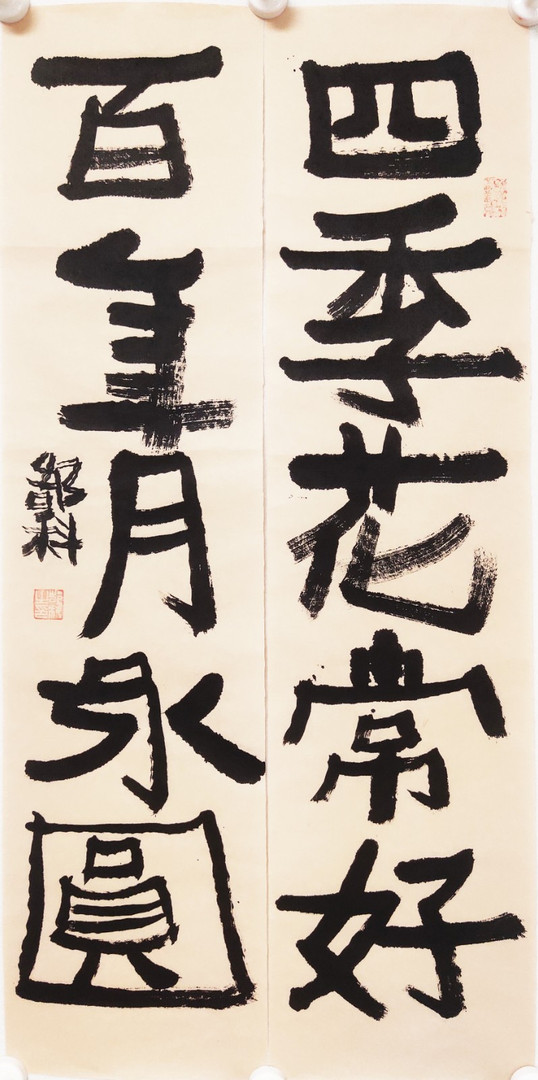 四季花常好
百年月永圓